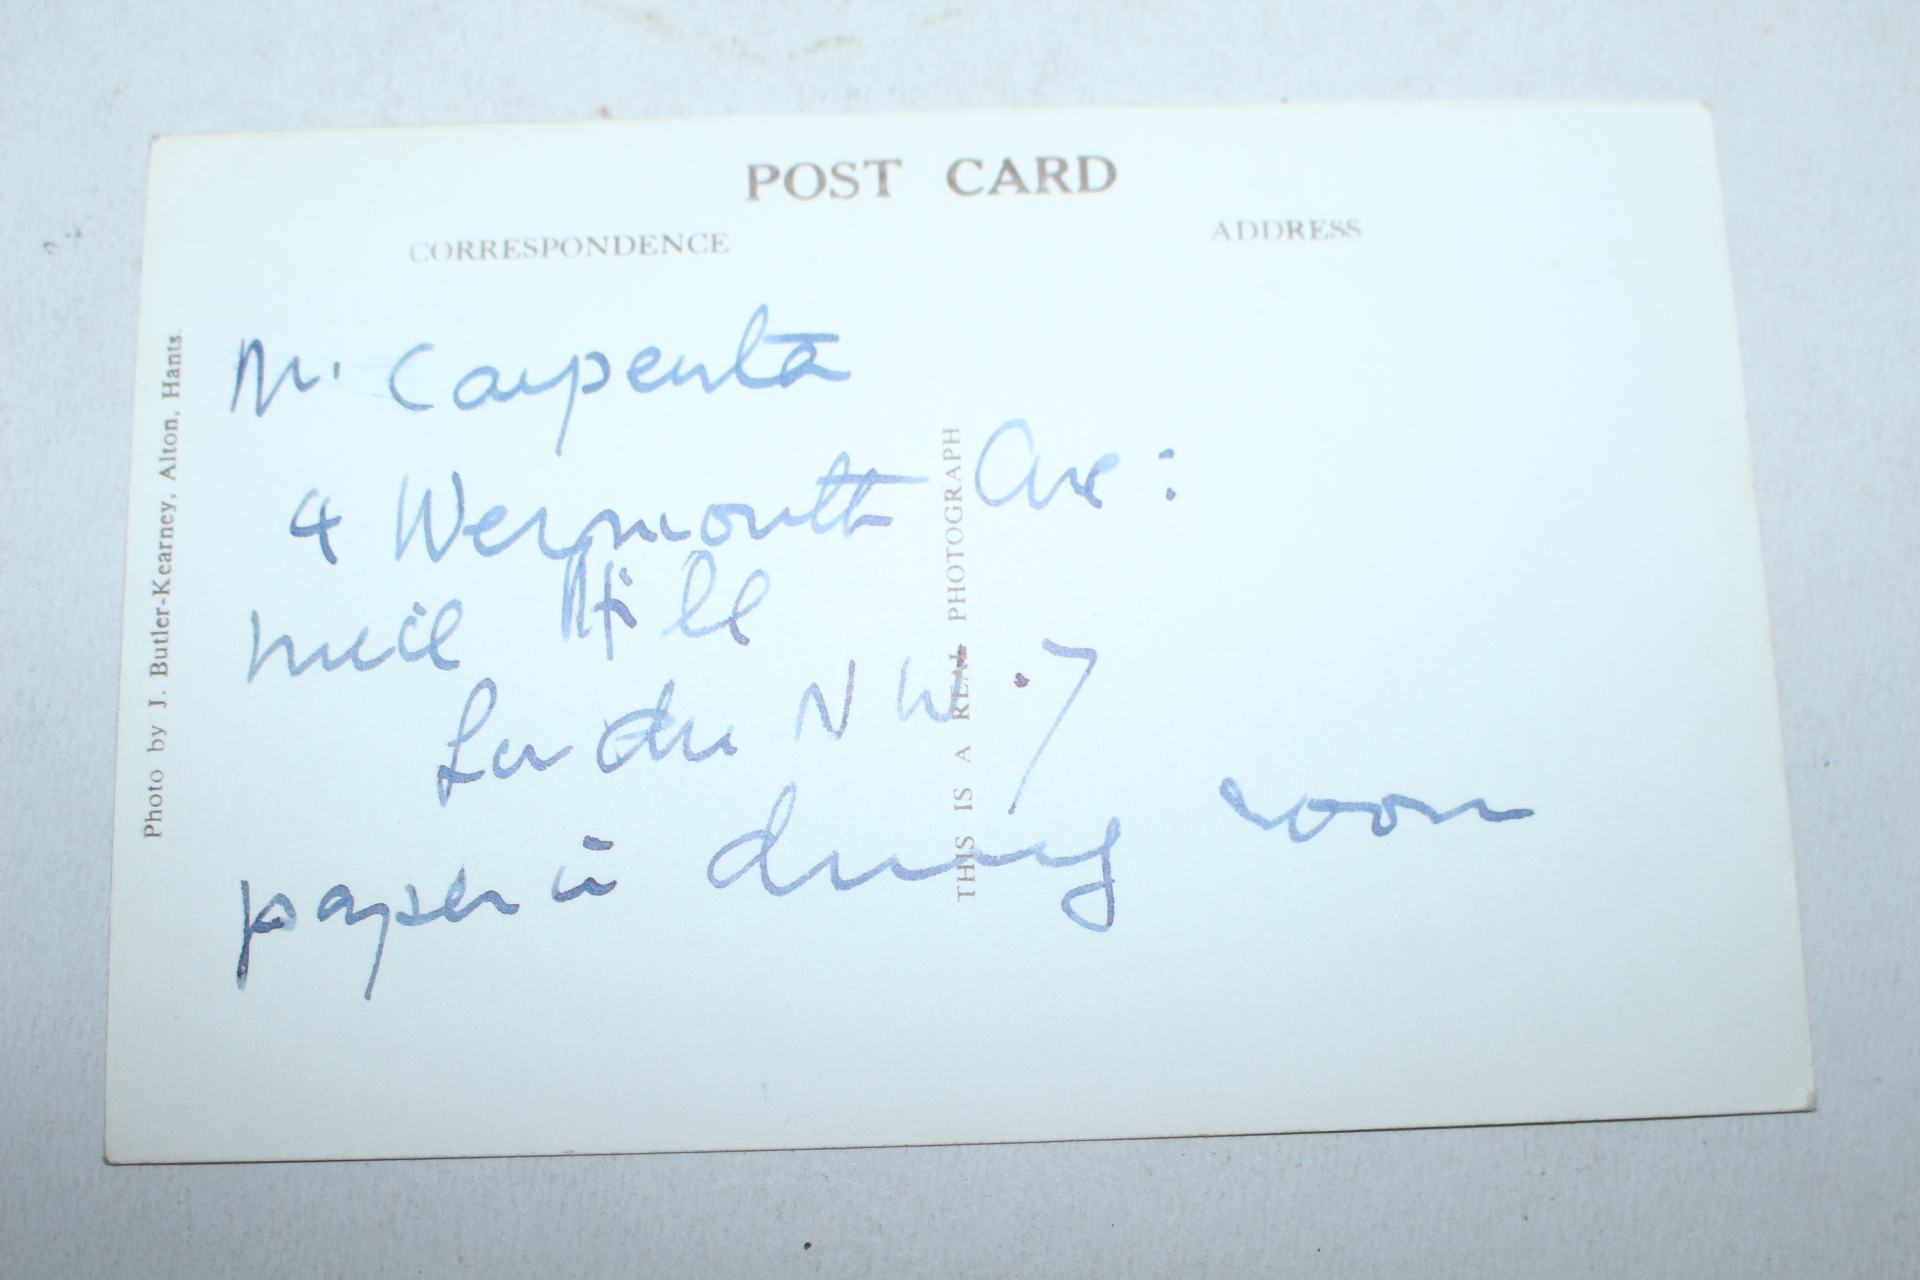 POST CARD
CORRESPONDENCE
ADDRESS
Photo by J. Butler-Kearney, Alton, Hants.
THIS IS A REAL PHOTOGRAPH
Mr. Carpenter
4 Weymouth Ave:
Mill Hill
London N W. 7
paper in dining room